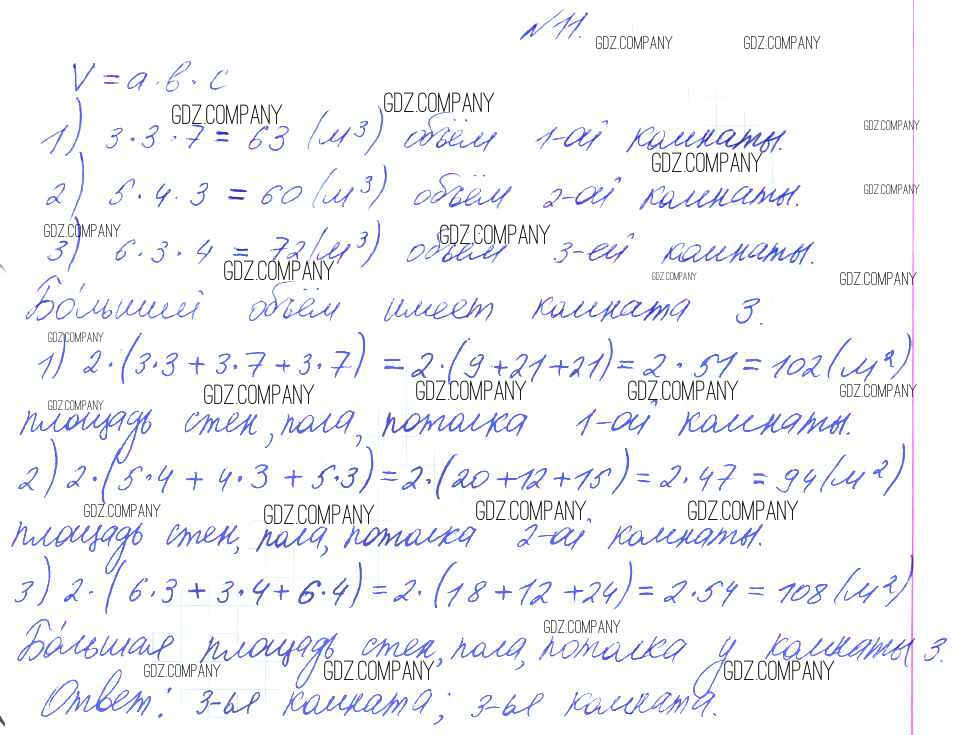 №11.
GDZ.COMPANY GDZ.COMPANY
V = а·в·с
GDZ.COMPANY GDZ.COMPANY
1) 3·3·7 = 63 (м³) объём 1-ой комнаты.
GDZ.COMPANY GDZ.COMPANY
2) 5·4·3 = 60 (м³) объём 2-ой комнаты.
GDZ.COMPANY
GDZ.COMPANY GDZ.COMPANY
3) 6·3·4 = 72 (м³) объём 3-ей комнаты.
GDZ.COMPANY GDZ.COMPANY GDZ.COMPANY
Бо́льший объём имеет комната 3.
GDZ.COMPANY
1) 2·(3·3 + 3·7 + 3·7) = 2·(9+21+21) = 2·51 = 102 (м²)
GDZ.COMPANY GDZ.COMPANY GDZ.COMPANY GDZ.COMPANY GDZ.COMPANY
площадь стен, пола, потолка 1-ой комнаты.
2) 2·(5·4 + 4·3 + 5·3) = 2·(20+12+15) = 2·47 = 94 (м²)
GDZ.COMPANY GDZ.COMPANY GDZ.COMPANY GDZ.COMPANY
площадь стен, пола, потолка 2-ой комнаты.
3) 2·(6·3 + 3·4 + 6·4) = 2·(18+12+24) = 2·54 = 108 (м²)
GDZ.COMPANY
Бо́льшая площадь стен, пола, потолка у комнаты 3.
GDZ.COMPANY GDZ.COMPANY GDZ.COMPANY
Ответ: 3-ья комната; 3-ья комната.